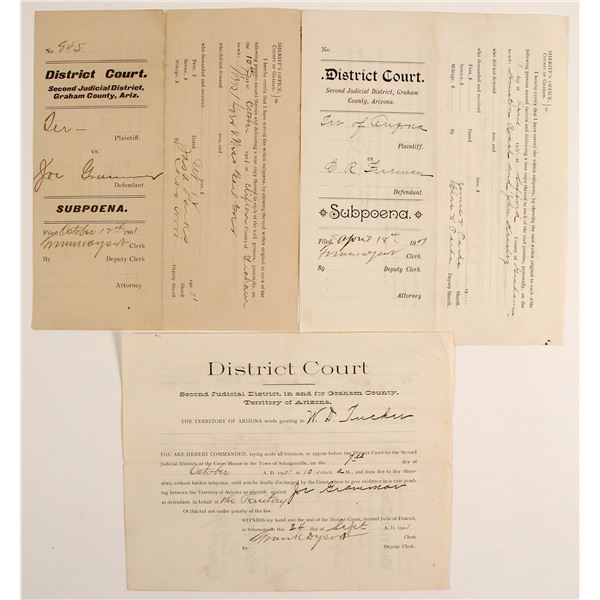 No. 845
District Court.
Second Judicial District,
Graham County, Ariz.
Ter
Plaintiff.
vs.
Joe Grammar
Defendant.
SUBPOENA.
Filed October 12th 1901
Clerk
By
Deputy Clerk
Attorney
SHERIFF'S OFFICE,
COUNTY OF GRAHAM.
I hereby certify that I have served the within subpoena, by showing the said within original to each of the
following persons named therein and delivering a true copy thereof to each of the said persons, personally, on
the 10th day of October 1901 at Clifton County of Graham
to-wit:
who did not demand fees, and
who demanded and received fees.
Dated
Fees, $
Service, $
Mileage, $
By
Sheriff
Deputy Sheriff
No.
District Court.
Second Judicial District, Graham
County, Arizona.
Ter of Arizona
Plaintiff.
vs
C. R. Freeman
Defendant.
Subpoena.
Filed April 18th 1901
Clerk.
By
Deputy Clerk.
Attorney
SHERIFF'S OFFICE,
COUNTY OF GRAHAM.
I hereby certify that I have served the within subpoena, by showing the said within original to each of the
following persons named therein and delivering a true copy thereof to each of the said persons, personally, on
County of Graham
to-wit:
who did not demand fees, and
who demanded and received fees.
Dated
Fees, $
Service, $
Mileage, $
By
Sheriff.
Deputy Sheriff
District Court
Second Judicial District, in and for Graham County,
Territory of Arizona.
THE TERRITORY OF ARIZONA sends greeting to W. D. Tucker
YOU ARE HEREBY COMMANDED, laying aside all business, to appear before the District Court for the Second
Judicial District, at the Court House in the Town of Solomonville, on the 7th day of
October A. D. 1901 at 10 o'clock a M., and from day to day there-
after, without further subpoena, until you be finally discharged by the Court, there to give evidence in a case pend-
ing between the Territory of Arizona as plaintiff, against Joe Grammar
as defendant, in behalf of the Territory
Of this fail not under penalty of the law.
WITNESS my hand and the seal of the District Court, Second Judicial District,
at Solomonville this 24 day of Sept A. D. 1901
Frank Dysart
Clerk.
By:
Deputy Clerk.